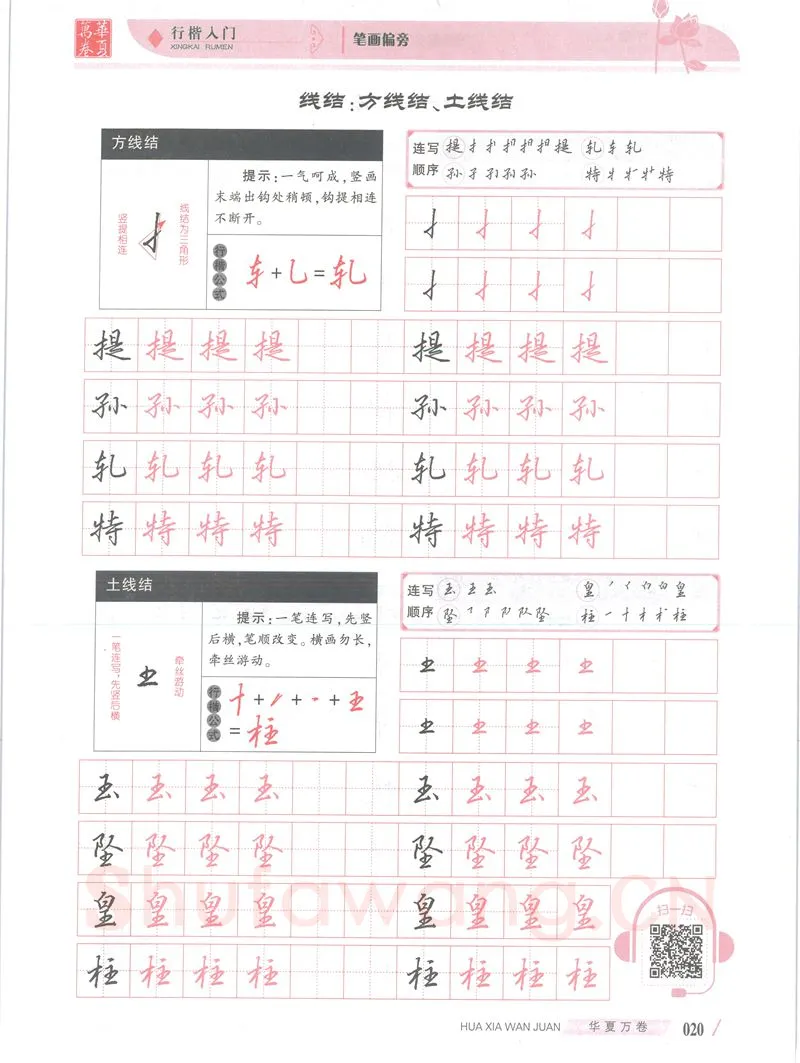 華夏萬卷
行楷入门
XINGKAI RUMEN
笔画偏旁
线结：方线结、土线结
方线结
竖提相连
线结为三角形
提示：一气呵成，竖画
末端出钩处稍顿，钩提相连
不断开。
行楷公式
车+乚=轧
连写 提 扌 扌 押 押 押 提 轧 车 轧
顺序 孙 孑 孙 孙 孙 特 牜 牜 牜 特
提 提 提 提 提 提 提 提
孙 孙 孙 孙 孙 孙 孙 孙
轧 轧 轧 轧 轧 轧 轧 轧
特 特 特 特 特 特 特 特
土线结
一笔连写，先竖后横
牵丝游动
提示：一笔连写，先竖
后横，笔顺改变。横画勿长，
牵丝游动。
行楷公式
十+丿+丶+玉
=柱
连写 玉 玉 玉 皇 皇
顺序 坠 坠 柱 一 十 才 木 柱
玉 玉 玉 玉 玉 玉 玉 玉
坠 坠 坠 坠 坠 坠 坠 坠
皇 皇 皇 皇 皇 皇 皇 皇
柱 柱 柱 柱 柱 柱 柱 柱
Shufawang.CN
扫一扫
HUA XIA WAN JUAN
华夏万卷
020